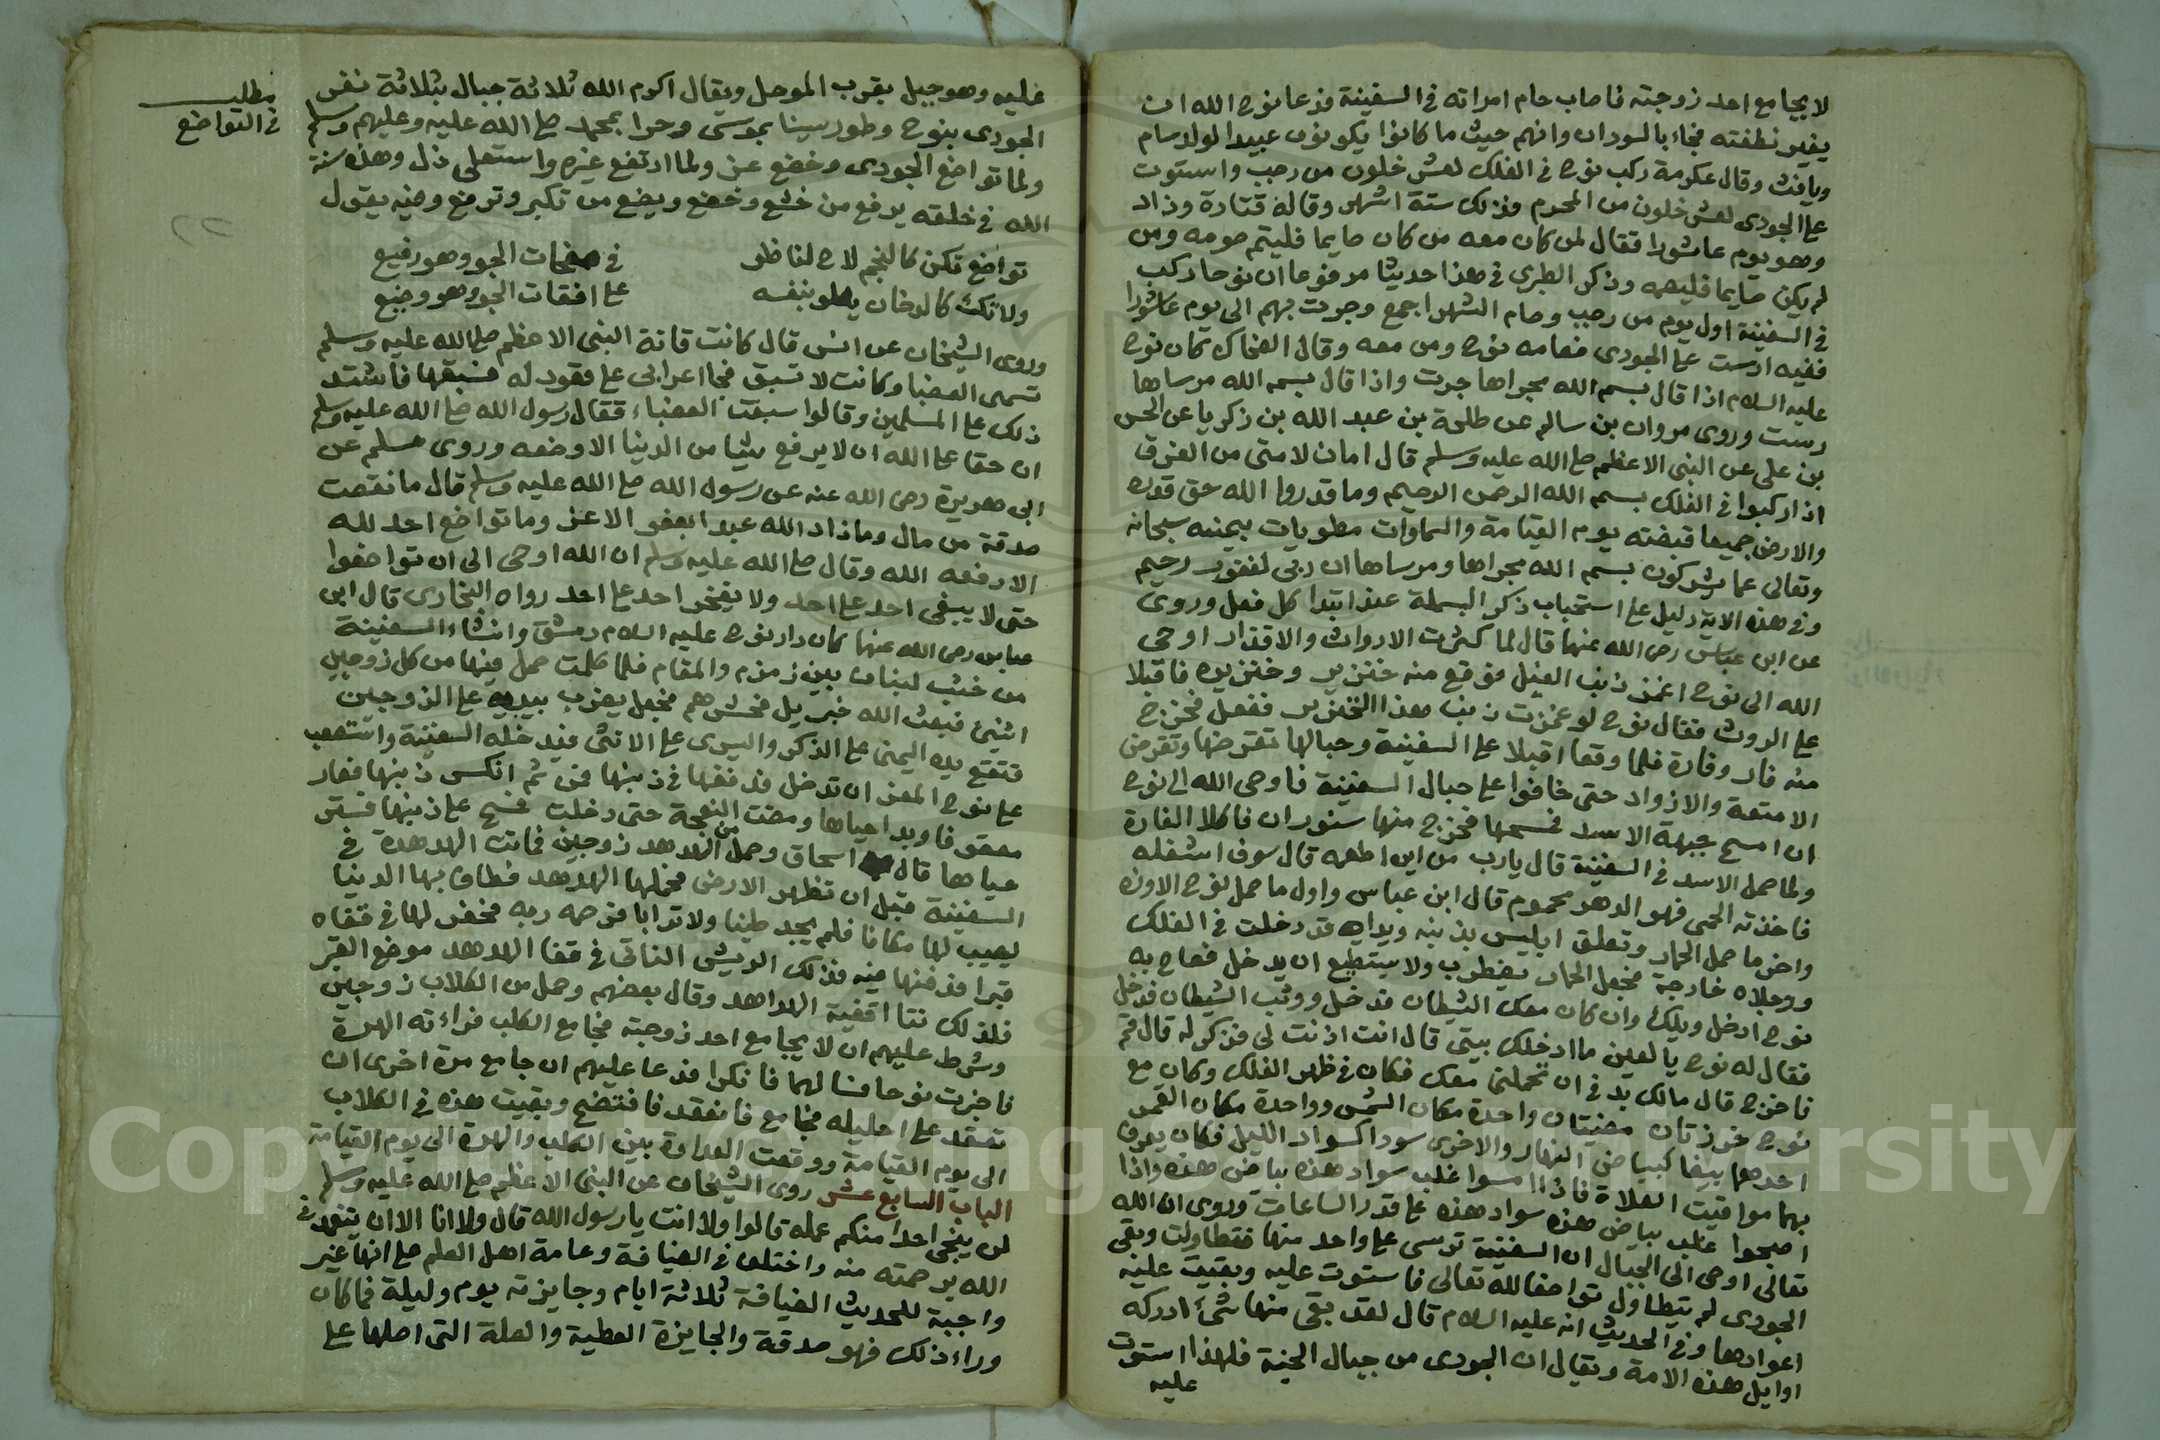 لا يجامع احد زوجته فاصاب حام امراته في السفينة فدعا نوح الله ان
يغير نطفته فجاء بالسودان وانهم حيث ما كانوا يكونون عبيدا لولد سام
ويافث وقال عكرمة ركب نوح في الفلك لعشر خلون من رجب واستوت
على الجودى لعشر خلون من المحرم فذلك ستة اشهر وقاله قتادة وزاد
وهو يوم عاشورا فقال لمن كان معه من كان صايما فليتم صومه ومن
لم يكن صايما فليصمه وذكر الطبرى في هذا حديثا مرفوعا ان نوحا ركب
في السفينة اول يوم من رجب وصام الشهر اجمع وجرت بهم الى يوم عاشورا
ففيه ارست على الجودى فصامه نوح ومن معه وقال الضحاك كان نوح
عليه السلام اذا قال بسم الله مجراها جرت واذا قال بسم الله مرساها
رست وروى مروان بن سالم عن طلحة بن عبد الله بن زكريا عن الحسن
بن على عن النبى الاعظم صلى الله عليه وسلم قال امان لامتى من الغرق
اذا ركبوا في الفلك بسم الله الرحمن الرحيم وما قدروا الله حق قدره
والارض جميعا قبضته يوم القيامة والسماوات مطويات بيمينه سبحانه
وتعالى عما يشركون بسم الله مجراها ومرساها ان ربى لغفور رحيم
وفي هذه الاية دليل على استحباب ذكر البسملة عند ابتدا كل فعل وروى
عن ابن عباس رضى الله عنهما قال لما كثرت الارواث والاقذار اوحى
الله الى نوح اغمز ذنب الفيل فوقع منه خنزير وخنزيره فاقبلا
على الروث فقال نوح لو غمزت ذنب هذا الخنزير ففعل فخرج
منه فار وفارة فلما وقعا اقبلا على السفينة وحبالها تقرضها وتقرض
الامتعة والازواد حتى خافوا على حبال السفينة فاوحى الله الى نوح
ان امسح جبهة الاسد فمسحها فخرج منها سنوران فاكلا الفارة
ولما حمل الاسد في السفينة قال يارب من اين اطعمه قال سوف اشغله
فاخذته الحمى فهو الدهر محموم قال ابن عباس واول ما حمل نوح الاوزه
واخر ما حمل الحمار وتعلق ابليس بذنبه ويداه قد دخلت في الفلك
ورجلاه خارجة فجعل الحمار يضطرب ولا يستطيع ان يدخل فصاح به
نوح ادخل ويلك وان كان معك الشيطان فدخل ووثب الشيطان فدخل
فقال له نوح يا لعين ما ادخلك بيتى قال انت اذنت لى فذكر له قال قم
فاخرج قال مالك بد في ان تحملنى معك فكان في ظهر الفلك وكان مع
نوح خرزتان مضيئتان واحدة مكان الشمس وواحدة مكان القمر
احدهما بيضا كبياض النهار والاخرى سودا كسواد الليل فكان يعرف
بهما مواقيت الصلاة فاذا امسوا غلب سواد هذه بياض هذه واذا
اصبحوا غلب بياض هذه سواد هذه على قدر الساعات وروى ان الله
تعالى اوحى الى الجبال ان السفينة ترسى على واحد منها فتطاولت وبقى
الجودى لم يتطاول تواضعا لله تعالى فاستوت عليه وبقيت عليه
اعوادها وفي الحديث انه عليه السلام قال لقد بقى منها شئ ادركه
اوايل هذه الامة ويقال ان الجودى من جبال الجنة فلهذا استوت
عليه
عليه وهو جبل بقرب الموصل ويقال اكرم الله ثلاثة جبال بثلاثة نفر
الجودى بنوح وطور سينا بموسى وحرا بمحمد صلى الله عليه وعليهم وسلم
ولما تواضع الجودى وخضع عز ولما ارتفع غيره واستعلى ذل وهذه سنة
الله في خلقه يرفع من خشع وخضع ويضع من تكبر وترفع وفيه يقول
مطلب
في التواضع
تواضع تكن كالنجم لاح لناظر   في صفحات الجو وهو رفيع
ولا تك كالدخان يعلو بنفسه   على افقات الجو وهو وضيع
وروى الشيخان عن انس قال كانت ناقة النبى الاعظم صلى الله عليه وسلم
تسمى العضبا وكانت لا تسبق فجا اعرابى على قعود له فسبقها فاشتد
ذلك على المسلمين وقالوا سبقت العضباء فقال رسول الله صلى الله عليه وسلم
ان حقا على الله ان لا يرفع شيا من الدنيا الا وضعه وروى مسلم عن
ابى هريرة رضى الله عنه عن رسول الله صلى الله عليه وسلم قال ما نقصت
صدقة من مال وما زاد الله عبدا بعفو الا عز وما تواضع احد لله
الا رفعه الله وقال صلى الله عليه وسلم ان الله اوحى الى ان تواضعوا
حتى لا يبغى احد على احد ولا يفخر احد على احد رواه البخارى قال ابن
عباس رضى الله عنهما كان دار نوح عليه السلام دمشق وانشاء السفينة
من خشب لبنان بين زمزم والمقام فلما كملت حمل فيها من كل زوجين
اثنين فبعث الله جبريل فحشرهم فجعل يضرب بيديه على الزوجين
فتقع يده اليمنى على الذكر واليسرى على الانثى فيدخله السفينة واستصعب
على نوح المعز ان تدخل فدفعها في ذنبها فمن ثم انكسر ذنبها فصار
معقوفا وبدا حياها ومضت النعجة حتى دخلت فمسح على ذنبها فستر
حياها قال اسحاق وحمل من الهدهد زوجين فماتت الهدهدة في
السفينة قبل ان تظهر الارض فحملها الهدهد فطاف بها الدنيا
ليصيب لها مكانا فلم يجد طينا ولا ترابا فرحمه ربه فحفر لها في قفاه
قبرا فدفنها فيه فذلك الريش الناتى في قفا الهدهد موضع القبر
فلذلك نتا اقفية الهداهد وقال بعضهم وحمل من الكلاب زوجين
وشرط عليهم ان لا يجامع احد زوجته فجامع الكلب فراءته الهرة
فاخبرت نوحا فسالهما فانكرا فدعا عليهم ان جامع مرة اخرى ان
تعقد على احليله فجامع فانعقد فافتضح وبقيت هذه في الكلاب
الى يوم القيامة ووقعت العداوة بين الكلب والهرة الى يوم القيامة
الباب السابع عشر روى الشيخان عن النبى الاعظم صلى الله عليه وسلم
لن ينجى احدا منكم عمله قالوا ولا انت يا رسول الله قال ولا انا الا ان يتغمدنى
الله برحمته منه واختلف في الضيافة وعامة اهل العلم على انها غير
واجبة للحديث الضيافة ثلاثة ايام وجايزته يوم وليلة فما كان
وراء ذلك فهو صدقة والجايزة العطية والصلة التى اصلها على
Copyright © King Saud University